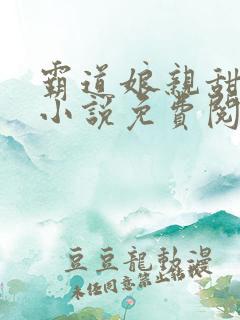 霸道娘親甜
小說免費閱
豆豆龍動漫
未任同意禁止轉載